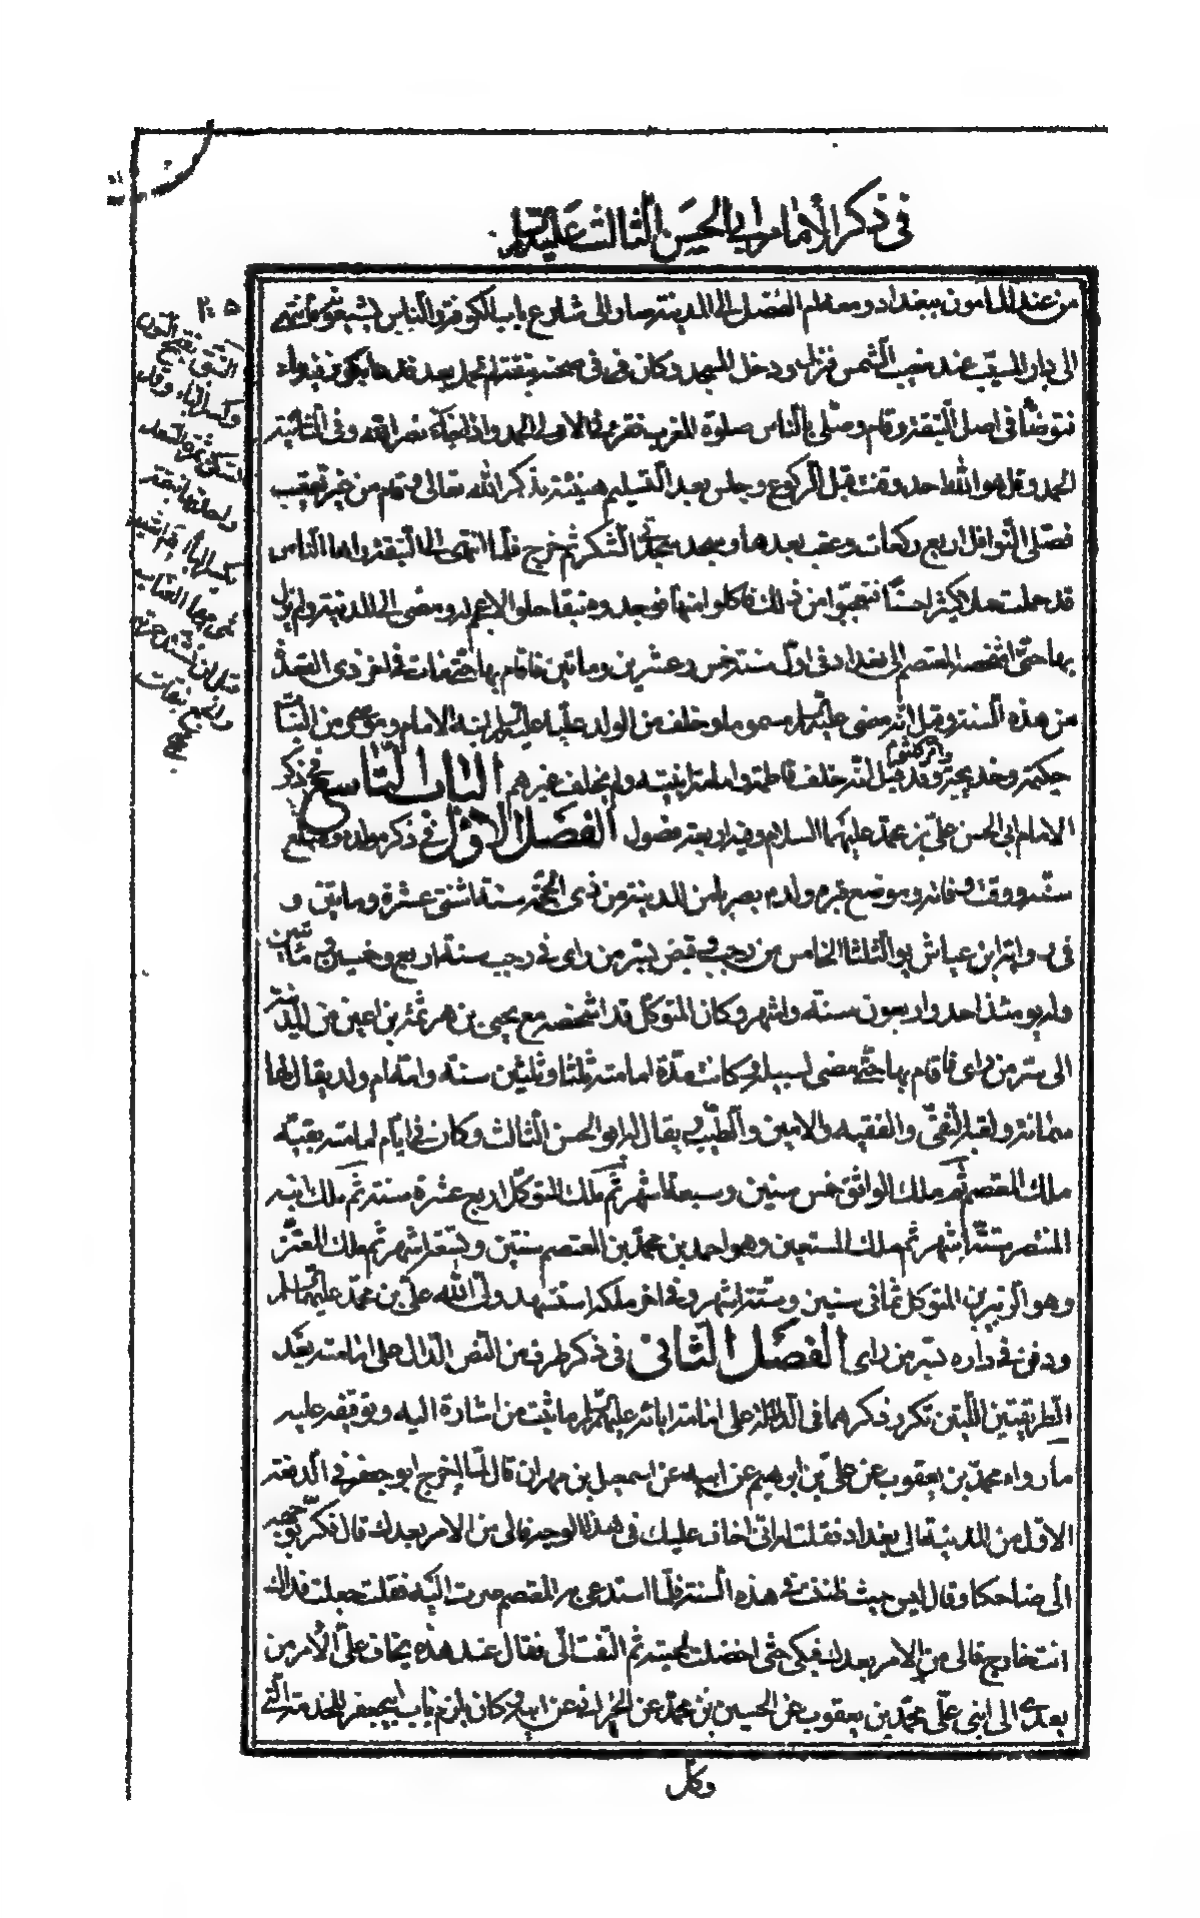 في ذكر الإمام أبي الحسن الثالث عليه السلام
٢٠٥
من عند المأمون ببغداد ومعه ام الفضل الى المدينة صار الى شارع باب الكوفة والناس يشيعونه فانتهى
الى دار المسيب عند مغيب الشمس فنزل ودخل المسجد وكان في صحنه نبقة لم تحمل بعد فدعا بكوز فيه ماء
فتوضأ في اصل النبقة وقام وصلى بالناس صلوة المغرب فقرء في الاولى الحمد واذا جاء نصر الله وفي الثانية
الحمد وقل هو الله احد وقنت قبل الركوع وجلس بعد التسليم هنيئة يذكر الله تعالى وقام من غير تعقيب
فصلى النوافل اربع ركعات وعقب بعدها وسجد سجدتي الشكر ثم خرج فلما انتهى الى النبقة راها الناس
قد حملت حملا كثيرا حسنا فتعجبوا من ذلك فاكلوا منها فوجدوه نبقا حلوا لا عجم له ومضى الى المدينة ولم يزل
بها حتى اشخصه المعتصم الى بغداد في اول سنة خمس وعشرين ومأتين فاقام بها حتى مات في اخر ذي القعدة
من هذه السنة وقيل انه مضى عليه السلام مسموما وخلف من الولد عليا عليه السلام ابنه الامام وموسى ومن البنات
حكيمة وخديجة وام كلثوم وقد قيل انه خلف فاطمة وامامة ابنتيه ولم يخلف غيرهم الباب التاسع في ذكر
الامام ابي الحسن علي بن محمد عليهما السلام وفيه اربعة فصول الفصل الاول في ذكر مولده ومبلغ
سنه ووقت وفاته وموضع قبره ولد بصريا من المدينة من ذي الحجة سنة اثنتي عشرة ومأتين و
في رواية ابن عياش يوم الثلثا الخامس من رجب وقبض بسر من راى في رجب سنة اربع وخمسين ومأتين
وله يومئذ احد واربعون سنة واشهر وكان المتوكل قد اشخصه مع يحيى بن هرثمة بن اعين من المدينة
الى سر من راى فاقام بها حتى مضى لسبيله وكانت مدة امامته ثلثا وثلثين سنة وامه ام ولد يقال لها
سمانة ولقبه النقي والفقيه والامين والطيب ويقال له ابو الحسن الثالث وكان في ايام امامته بقية
ملك المعتصم ثم ملك الواثق خمس سنين وسبعة اشهر ثم ملك المتوكل اربع عشرة سنة ثم ملك ابنه
المنتصر ستة اشهر ثم ملك المستعين وهو احمد بن محمد بن المعتصم سنتين وتسعة اشهر ثم ملك المعتز
وهو الزبير بن المتوكل ثماني سنين وستة اشهر وفي اخر ملكه استشهد ولي الله علي بن محمد عليهما السلام
ودفن في داره بسر من راى الفصل الثاني في ذكر طرف من النص الدال على امامته بعد
الطريقتين اللتين تكرر ذكرهما في الدلالة على امامة ابائه عليهم السلام ما ثبت من اشارة ابيه وتوقيفه عليه
ما رواه محمد بن يعقوب عن علي بن ابرهيم عن ابيه عن اسمعيل بن مهران قال لما اخرج ابو جعفر في الدفعة
الاولى من المدينة الى بغداد فقلت له اني اخاف عليك في هذا الوجه فالى من الامر بعدك قال فكر بوجهه
الى ضاحكا وقال ليس حيث ظننت في هذه السنة فلما استدعى به المعتصم صرت اليه فقلت جعلت فداك
انت خارج فالى من الامر بعدك فبكى حتى اخضلت لحيته ثم التفت الى فقال عند هذه يخاف علي الأمر من
بعدي الى ابني علي محمد بن يعقوب عن الحسين بن محمد عن الخيراني عن ابيه وكان يلزم باب ابي جعفر للخدمة التي
وكل